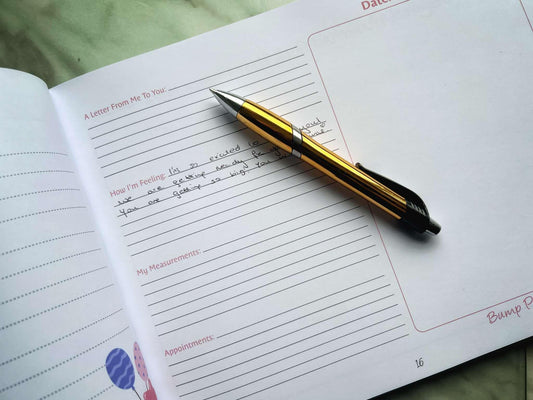 Date:
A Letter From Me To You:
How I'm Feeling: I'm so excited
we are getting ready for
You are getting so big. You
My Measurements:
Appointments:
Bump P
16